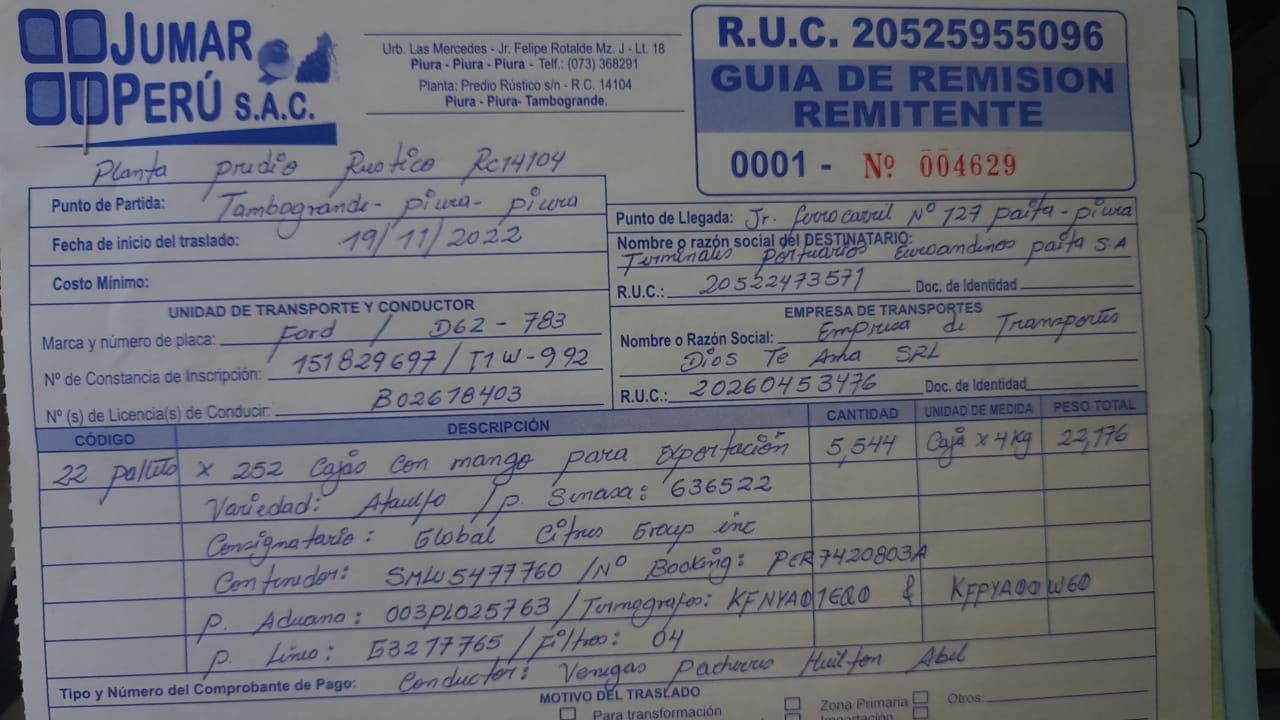 JUMAR PERÚ S.A.C.
Urb. Las Mercedes - Jr. Felipe Rotalde Mz. J - Lt. 18
Piura - Piura - Piura - Telf.: (073) 368291
Planta: Predio Rústico s/n - R.C. 14104
Piura - Piura- Tambogrande.
R.U.C. 20525955096
GUIA DE REMISION
REMITENTE
0001 - Nº 004629
Planta predio Rustico RC14104
Punto de Partida: Tambogrande - piura - piura
Fecha de inicio del traslado: 19/11/2022
Costo Mínimo:
Punto de Llegada: Jr. ferrocarril Nº 127 paita - piura
Nombre o razón social del DESTINATARIO:
Terminales Portuarios Euroandinos paita SA
R.U.C.: 20522473571 Doc. de Identidad
UNIDAD DE TRANSPORTE Y CONDUCTOR
Marca y número de placa: Ford / D62 - 783
Nº de Constancia de Inscripción: 151829697 / T1W-992
Nº (s) de Licencia(s) de Conducir: B02678403
EMPRESA DE TRANSPORTES
Nombre o Razón Social: Empresa de Transportes
Dios Te Ama SRL
R.U.C.: 20260453476 Doc. de Identidad
CÓDIGO DESCRIPCIÓN CANTIDAD UNIDAD DE MEDIDA PESO TOTAL
22 palets x 252 Cajas con mango para Exportación 5,544 Caja x 4kg 22,176
Variedad: Ataulfo / p. Senasa: 636522
Consignatario: Global Citrus Group inc
Contenedor: SMLU5477760 / Nº Booking: PER7420803A
p. Aduana: 003PL025763 / Termografos: KFNYA01EQ0 & KFPYA00W60
p. Linea: G3217765 / Filtros: 04
Tipo y Número del Comprobante de Pago: Conductor: Venegas Pacherres Huilton Abel
MOTIVO DEL TRASLADO
Para transformación Zona Primaria Otros:
Importación